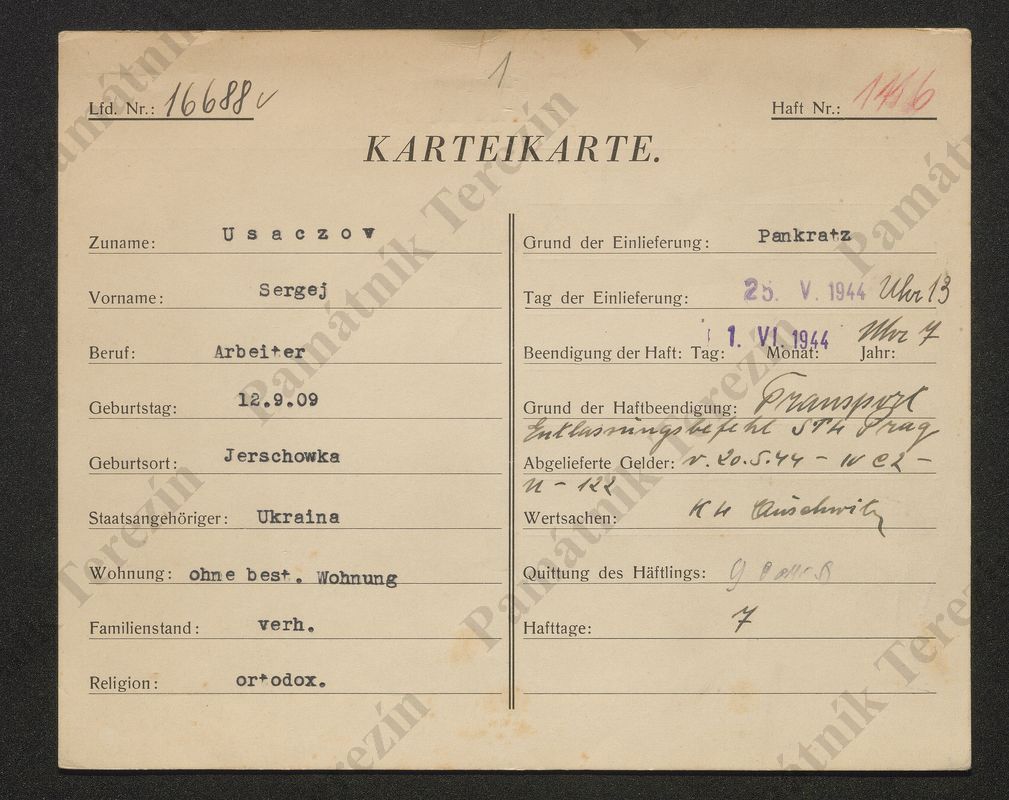 1
Lfd. Nr.: 16688 v
Haft Nr.:
KARTEIKARTE.
Zuname: Usaczov
Vorname: Sergej
Beruf: Arbeiter
Geburtstag: 12.9.09
Geburtsort: Jerschowka
Staatsangehöriger: Ukraina
Wohnung: ohne best. Wohnung
Familienstand: verh.
Religion: ortodox.
Grund der Einlieferung: Pankratz
Tag der Einlieferung: 25. V. 1944 Uhr 13
Uhr 7
Beendigung der Haft: Tag: 1. VI. 1944 Monat: Jahr:
Grund der Haftbeendigung: Transport
Entlassungsbefehl STL Prag
Abgelieferte Gelder: v. 20.5.44 - IV C 2 -
II - 122
Wertsachen: KL Auschwitz
Quittung des Häftlings:
Hafttage: 7
Památník Terezín